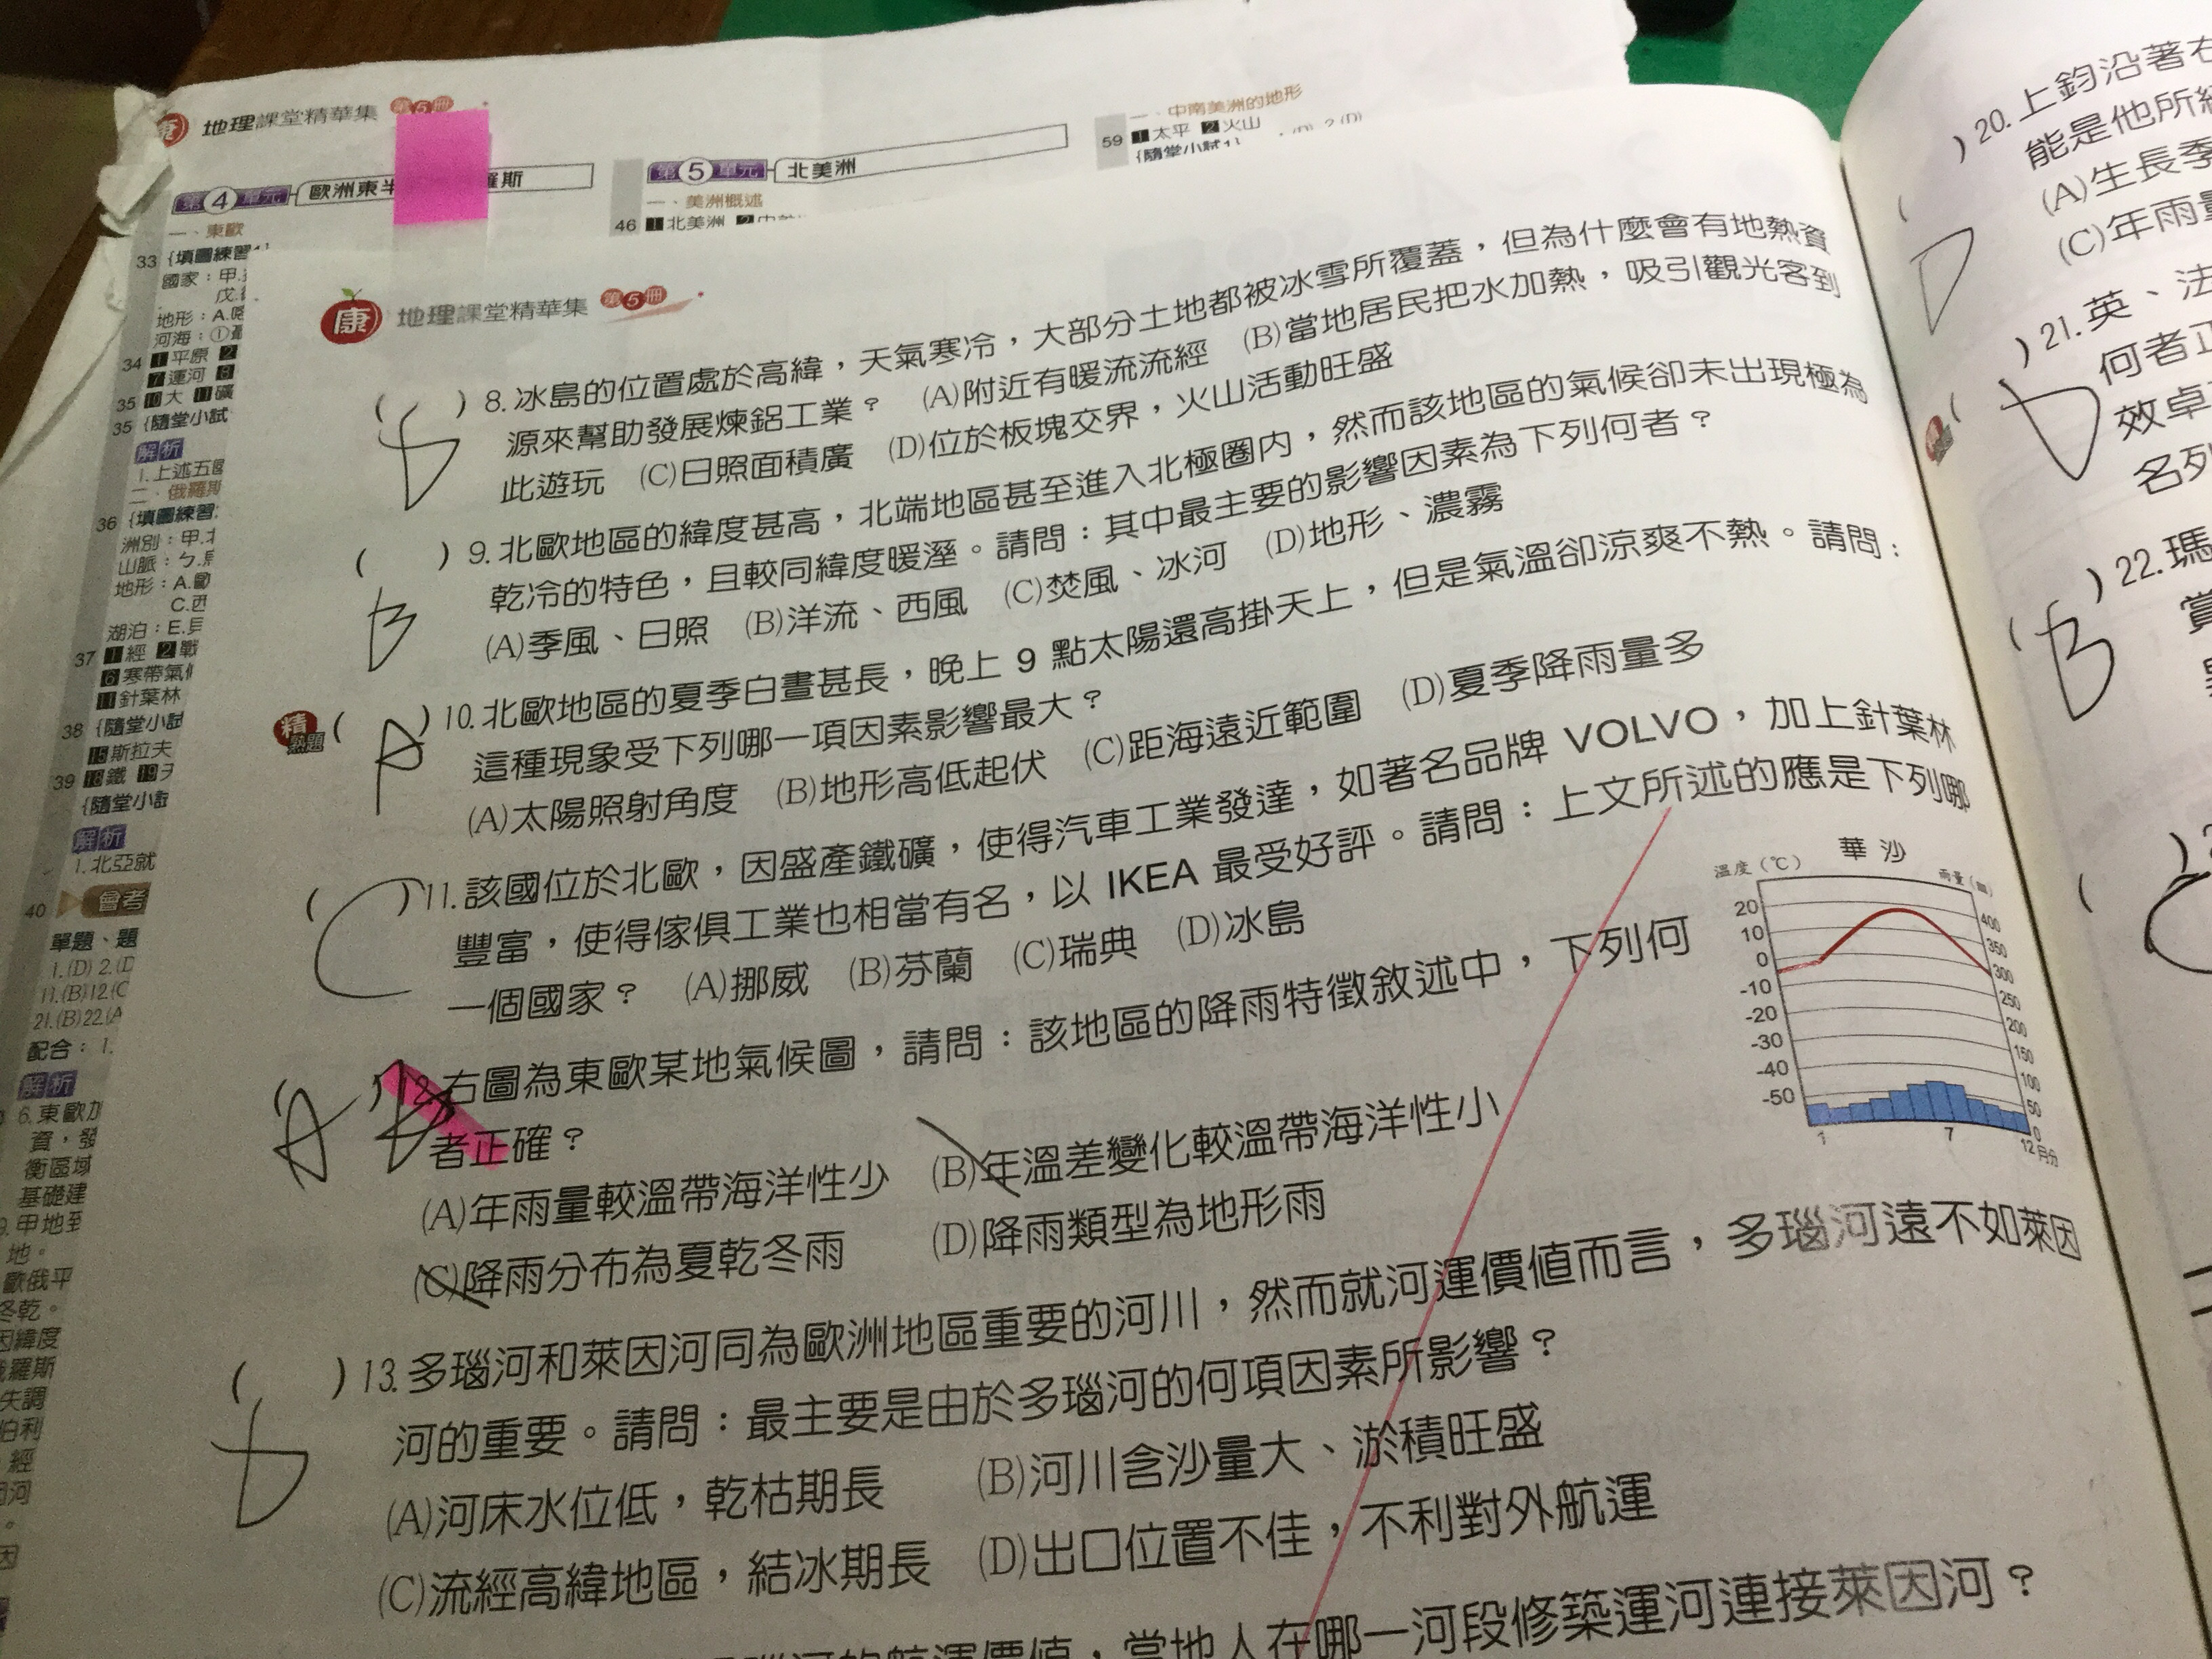 康 地理課堂精華集 第5冊
第4單元 歐洲東半 羅斯
一、東歐
33 {填圖練習
國家:甲.
戊.
地形:A.
河海:①
34 1平原 2
7運河 8
35 10大 11礦
35 {隨堂小試
解析
1.上述五國
二、俄羅斯
36 {填圖練習
洲別:甲.
山脈:ㄅ.
地形:A.歐
C.西
湖泊:E.貝
37 1經 2戰
6寒帶氣候
11針葉林
38 {隨堂小試
15斯拉夫
39 18鐵 19
{隨堂小試
解析
1.北亞就
40 會考
單題、題
1.(D) 2.(D
11.(B)12.(C
21.(B)22.(A
配合:1.
解析
6.東歐加
資,發
衡區域
基礎建
9.甲地到
地。
歐俄平
冬乾。
因緯度
俄羅斯
失調
伯利
經
河
。
因
第5單元 北美洲
一、美洲概述
46 1北美洲 2中
一、中南美洲的地形
59 1太平 2火山
{隨堂小試1}
康 地理課堂精華集 第5冊
( D )8.冰島的位置處於高緯,天氣寒冷,大部分土地都被冰雪所覆蓋,但為什麼會有地熱資
源來幫助發展煉鋁工業? (A)附近有暖流流經 (B)當地居民把水加熱,吸引觀光客到
此遊玩 (C)日照面積廣 (D)位於板塊交界,火山活動旺盛
( B )9.北歐地區的緯度甚高,北端地區甚至進入北極圈內,然而該地區的氣候卻未出現極為
乾冷的特色,且較同緯度暖溼。請問:其中最主要的影響因素為下列何者?
(A)季風、日照 (B)洋流、西風 (C)焚風、冰河 (D)地形、濃霧
精熟題 ( A )10.北歐地區的夏季白晝甚長,晚上 9 點太陽還高掛天上,但是氣溫卻涼爽不熱。請問:
這種現象受下列哪一項因素影響最大?
(A)太陽照射角度 (B)地形高低起伏 (C)距海遠近範圍 (D)夏季降雨量多
( C )11.該國位於北歐,因盛產鐵礦,使得汽車工業發達,如著名品牌 VOLVO,加上針葉林
豐富,使得傢俱工業也相當有名,以 IKEA 最受好評。請問:上文所述的應是下列哪
一個國家? (A)挪威 (B)芬蘭 (C)瑞典 (D)冰島
( A )12.右圖為東歐某地氣候圖,請問:該地區的降雨特徵敘述中,下列何
者正確?
(A)年雨量較溫帶海洋性少 (B)年溫差變化較溫帶海洋性小
(C)降雨分布為夏乾冬雨 (D)降雨類型為地形雨
溫度(℃) 華沙 雨量(㎜)
20 400
10 350
0 300
-10 250
-20 200
-30 150
-40 100
-50 50
0
1 7 12月分
( D )13.多瑙河和萊因河同為歐洲地區重要的河川,然而就河運價值而言,多瑙河遠不如萊因
河的重要。請問:最主要是由於多瑙河的何項因素所影響?
(A)河床水位低,乾枯期長 (B)河川含沙量大、淤積旺盛
(C)流經高緯地區,結冰期長 (D)出口位置不佳,不利對外航運
河的航運價值,當地人在哪一河段修築運河連接萊因河?
( D )20.上鈞沿著右
能是他所經
(A)生長季
(C)年雨量
( D )21.英、法
何者正
效卓
名列
( B )22.瑪
賞